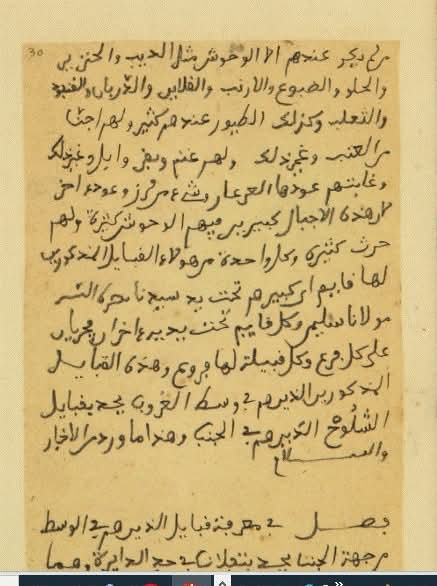 30
لم يكن عندهم الا الوحوش مثل الديب والخنزير
والضبوع والارنب والقلاين والدربان
والثعلب وكذلك الطيور عندهم كثير ولهم اجنات
من العنب وغيرذلك ولهم غنم وبقر وابل وغيرذلك
وغابتهم عودها العرعار وعود اخر
لان هذه الاجبال كبيرين فيهم الوحوش كثيرة ولهم
حرث كثيرة وكل واحدة من هولاء القبايل المذكورين
لها قايد اي كبيرهم تحت يد سيدنا نصره الله
مولانا سليم وكل قايد تحت يديه اخران يجريان
على كل فرع وكل قبيلة لها فروع وهذه القبايل
المذكورين الذين هم في وسط الغروب يحد بقبايل
الشلوح الذين هم في الجنب وهذا ما ورد من الاخبار
والسلام
فصل في معرفة قبايل الذين هم في الوسط
من جهة الجنب يحد في حد الدايرة وهما